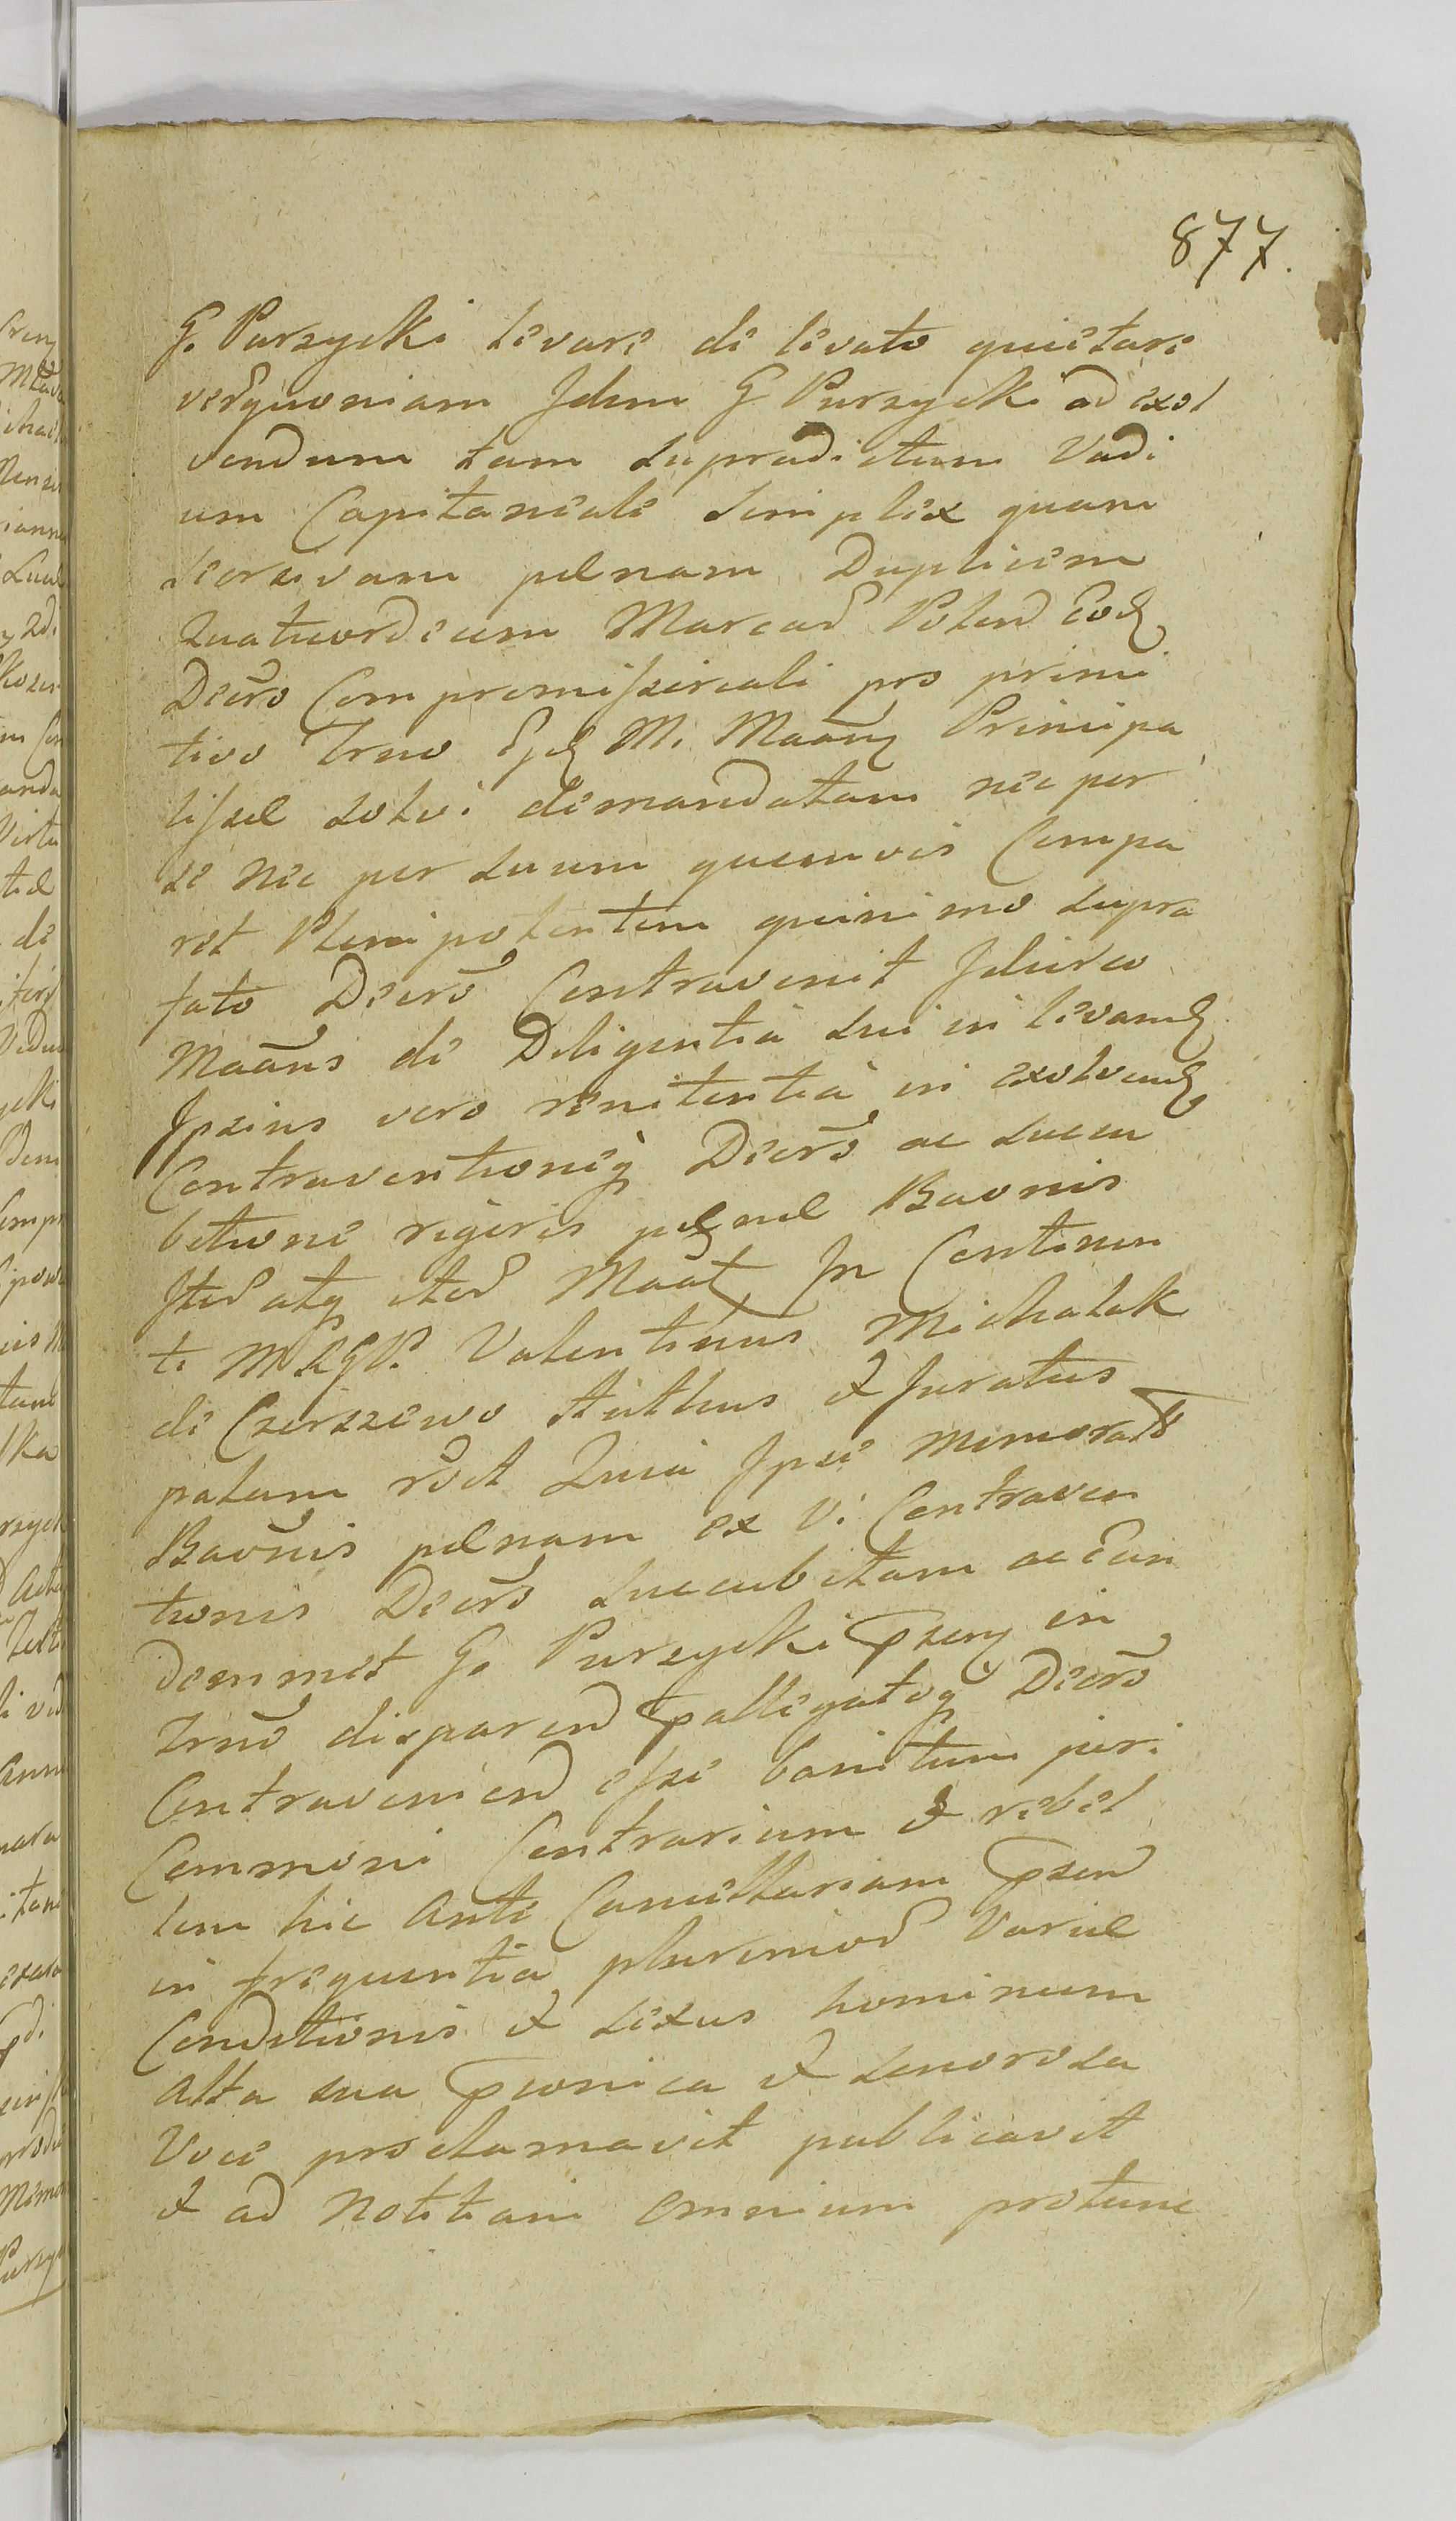 877.
G. Purzycki levare de levato quietare
verũ quoniam Idem G. Purzycki ad exol
vendum tam supradictum Vadi
um Capitaneale simplex quam
seorsivam pænam Duplicem
Quatuordecem Marcaꝝ Polonl Eodɇ
Decro Compromissoreali pro primi
tivo Trno Ejdɇ M. Maõnꝫ Principa
lissæ solvi demandatam nec per
se nec per suum quemvis Compa
ret Plenipotentem quinimo supra
fato Decrõ Contravenit Idcirco
Maãns de Diligentia sui in levandɇ
Ipsius vero renitentia in exolvendɇ
Contraventioneq Decrõ ac succu
bitione rigoris pænæ Baõnis
Iteꝝ atq iteꝝ Maãt In Continen
ti M R G P. Valentinus Michalak
de Czerszewo Authcus & Juratus
palam rõt Quia Ipse memoratæ
Baõnis pænam ex Vi Contraven
tionis Decrõ succubitam ac eun
demmet G. Purzycki Psenꝫ in
Trnõ disparend Pallegatoq Decrõ
Contraveniend esse banitum juri
Communi Contrarium & rebel
lem hic Ante Cancellariam Psend
in frequentia plurimoꝝ Variæ
Conditionis & sexus hominum
alta sua Pconica & sonorosa
Voce proclamavit publicavit
& ad Notitiam omnium protunc